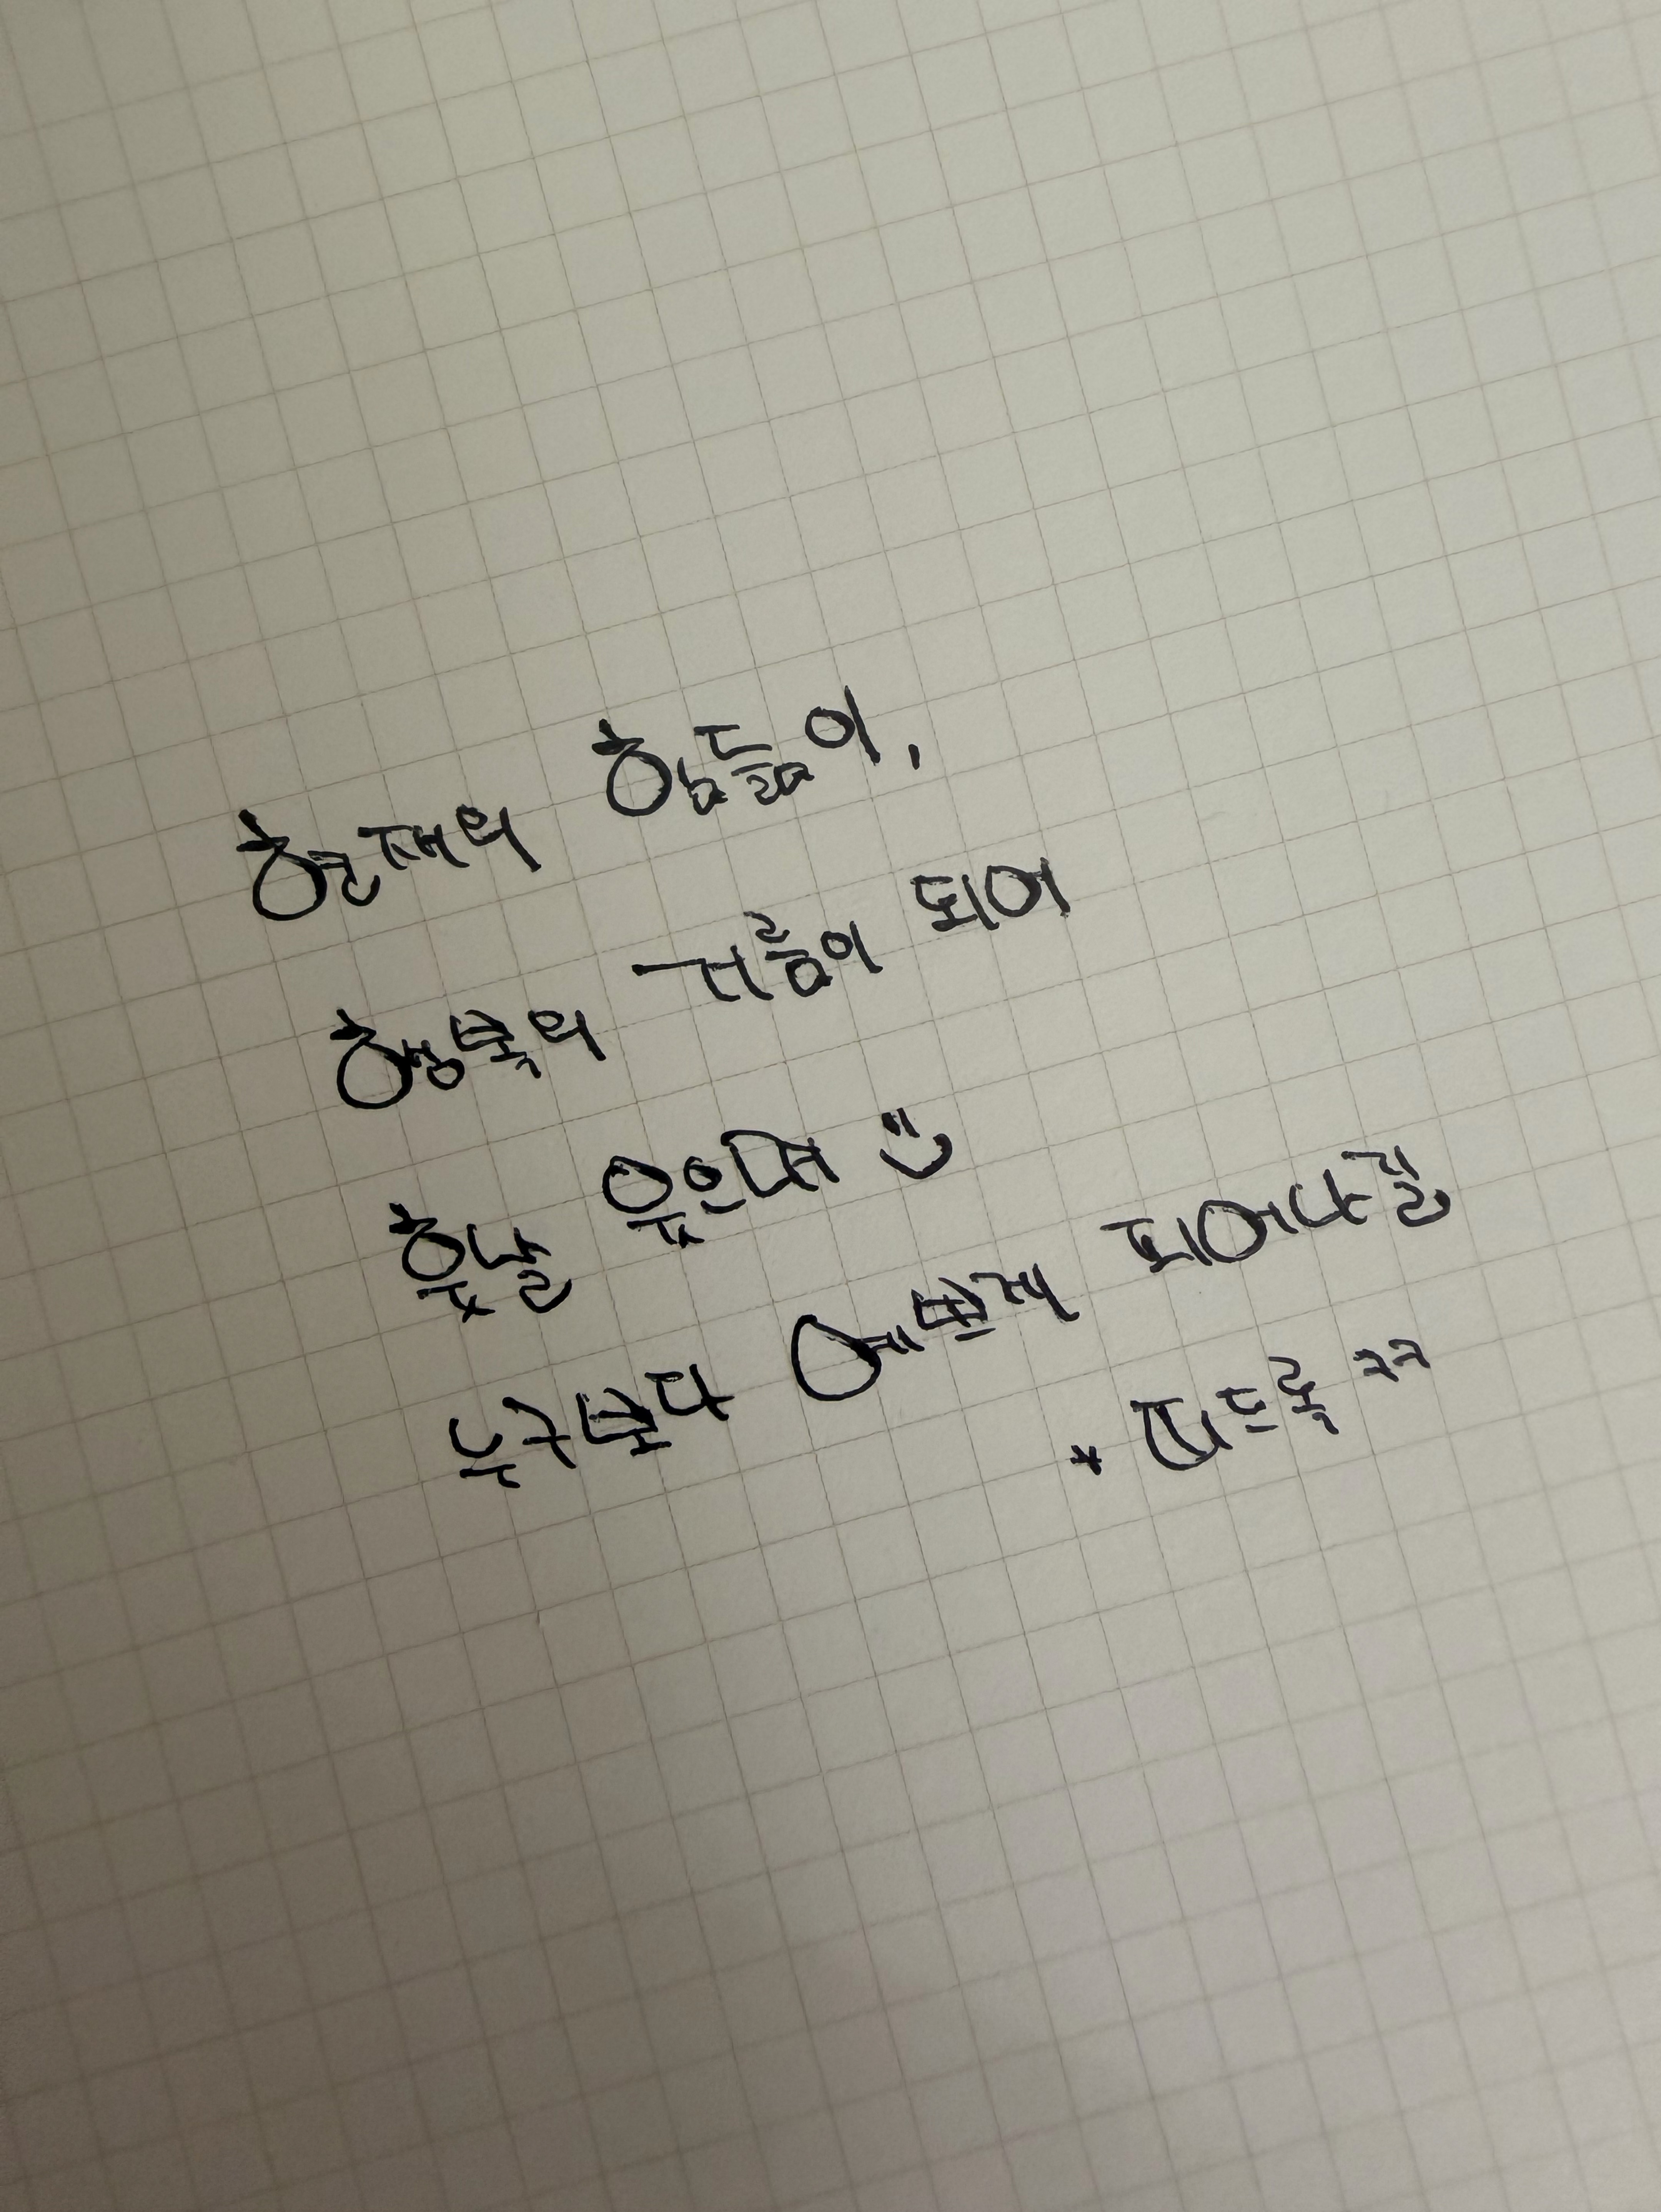 현재의 힘듦이,
행복의 거름이 되어
훗날 웃으며
누구보다 예쁘게 피어나길
ㅋㅋ